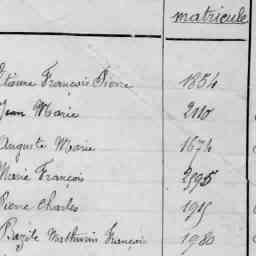 matricule
Etienne François Pierre 1854
Jean Marie 2110
Auguste Marie 1674
Marie François 2595
Pierre Charles 1915
Bazile Mathurin François 1980